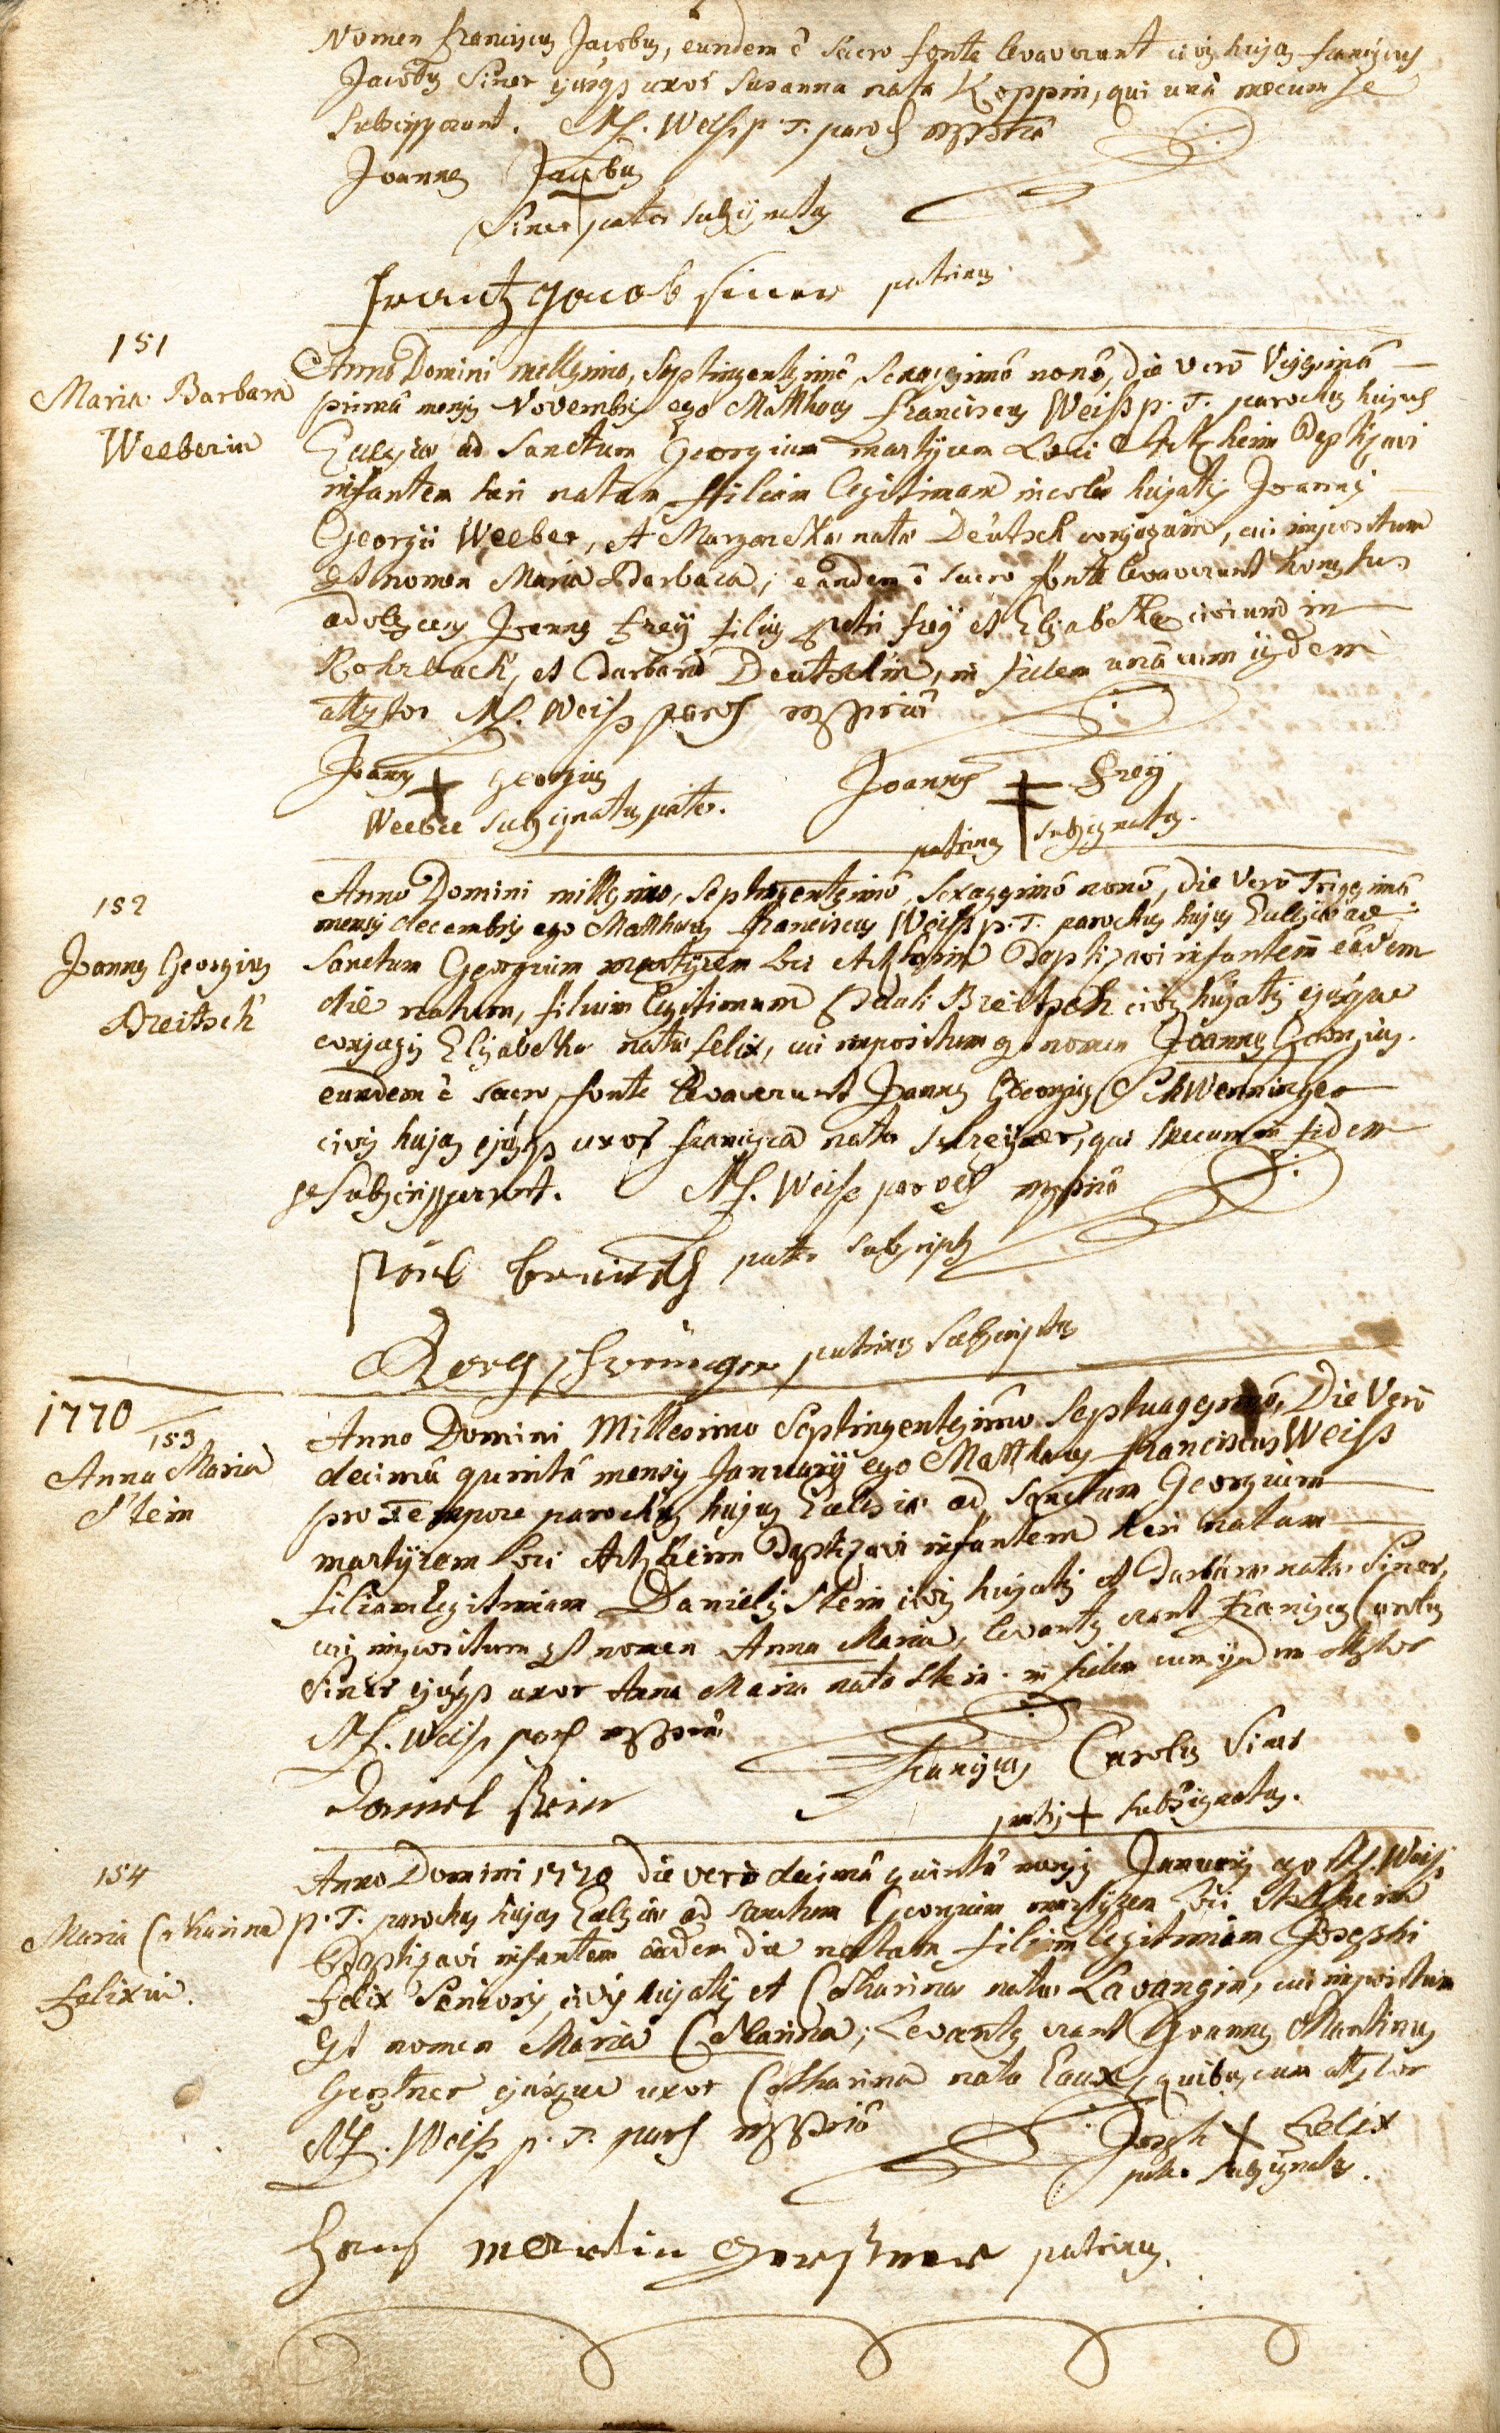 Nomen Franciscus Jacobus, eundem è sacro fonte levaverunt civis hujas Franciscus
Jacobus Siner ejusqs uxor Susanna nata Koppin, qui unà mecum se
subscripserunt. M.F. Weiss p. T. paroch mppria
Joannes Jacobus
Siner pater subsignatus
Frantz Jacob Siner patrinus
151
Maria Barbara
Weeberin
Anno Domini millesimo, septingentesimô, sexagesimô nonô, die verô vigesimâ
primâ mensis Novembris ego Matthaeus Franciscus Weiss p. T. parochus hujus
Ecclesiae ad Sanctum Georgium martyrem Loci Artzheim Baptizavi
infantem heri natam filiam legitimam incolae hujatis Joannis
Georgii Weeber, et Margarethae natae Deutsch conjugum, cui impositum
est nomen Maria Barbara; eandem è sacro fonte levaverunt honestus
adolescens Joannes Freÿ filius petri freÿ et Elisabetha civium in
Rohrbach, et Barbara Deutschin, in fidem unâ cum iisdem
attestor M.F. Weiss paroch mppriâ
Joannes + Georgius
Weeber subsignatus pater.
Joannes + Freÿ
patrinus subsignatus.
152
Joannes Georgius
Breitsch
Anno Domini millesimo, septingentesimô, sexagesimô nonô, die verô Trigesimâ
mensis decembris ego Matthaeus Franciscus Weiss p. T. parochus hujus Ecclesiae ad
Sanctum Georgium martyrem loci Artzheim Baptizavi infantem eâdem
die natum, filium legitimum Pauli Breitsch civis hujatis ejusque
conjugis Elisabetha nata felix, cui impositum est nomen Joannes Georgius.
eundem è sacro fonte levaverunt Joannes Georgius Schwenninger
civis hujas ejusqs uxor francisca nata schreiner, qui mecum in fidem
se subscripserunt. M.F. Weiss paroch mppriâ
paul breitsch pater subscriptus
Georg schweninger patrinus subscriptus
1770
153
Anna Maria
Stein
Anno Domini Millesimo Septingentesimô Septuagesimô, Die Verô
decimâ quintâ mensis Januarij ego Matthaeus Franciscus Weiss
pro Tempore parochus hujus Ecclesiae ad Sanctum Georgium
martyrem loci Artzheim Baptizavi infantem heri natam
filiam legitimam Danielis Stein civis hujatis et Barbarae natae Siner,
cui impositum est nomen Anna Maria, levantes erant Franciscus Carolus
Siner ejusqs uxor Anna Maria nata Stein. in fidem cum iisdem attestor
M.F. Weiss paroch mppriâ
Daniel Stein
Franciscus Carolus Siner
patrinus + subsignatus.
154
Maria Catharina
Felixin.
Anno Domini 1770 die verò decimâ quintâ mensis Januarij ego M.F. Weiss
p. T. parochus hujus Ecclesiae ad sanctum Georgium martyrem loci Artzheim
Baptizavi infantem eâdem die natam filiam legitimam Josephi
Felix Senioris civis hujatis et Catharinae natae Lavangin, cui impositum
est nomen Maria Catharina; Levantes erant Joannes Martinus
Gerstner ejusque uxor Catharina nata Laux, quibuscum attestor
M.F. Weiss p. T. paroch mppriâ
Joseph + Felix
pater subsignatus.
Hans Martin Gerstner patrinus.